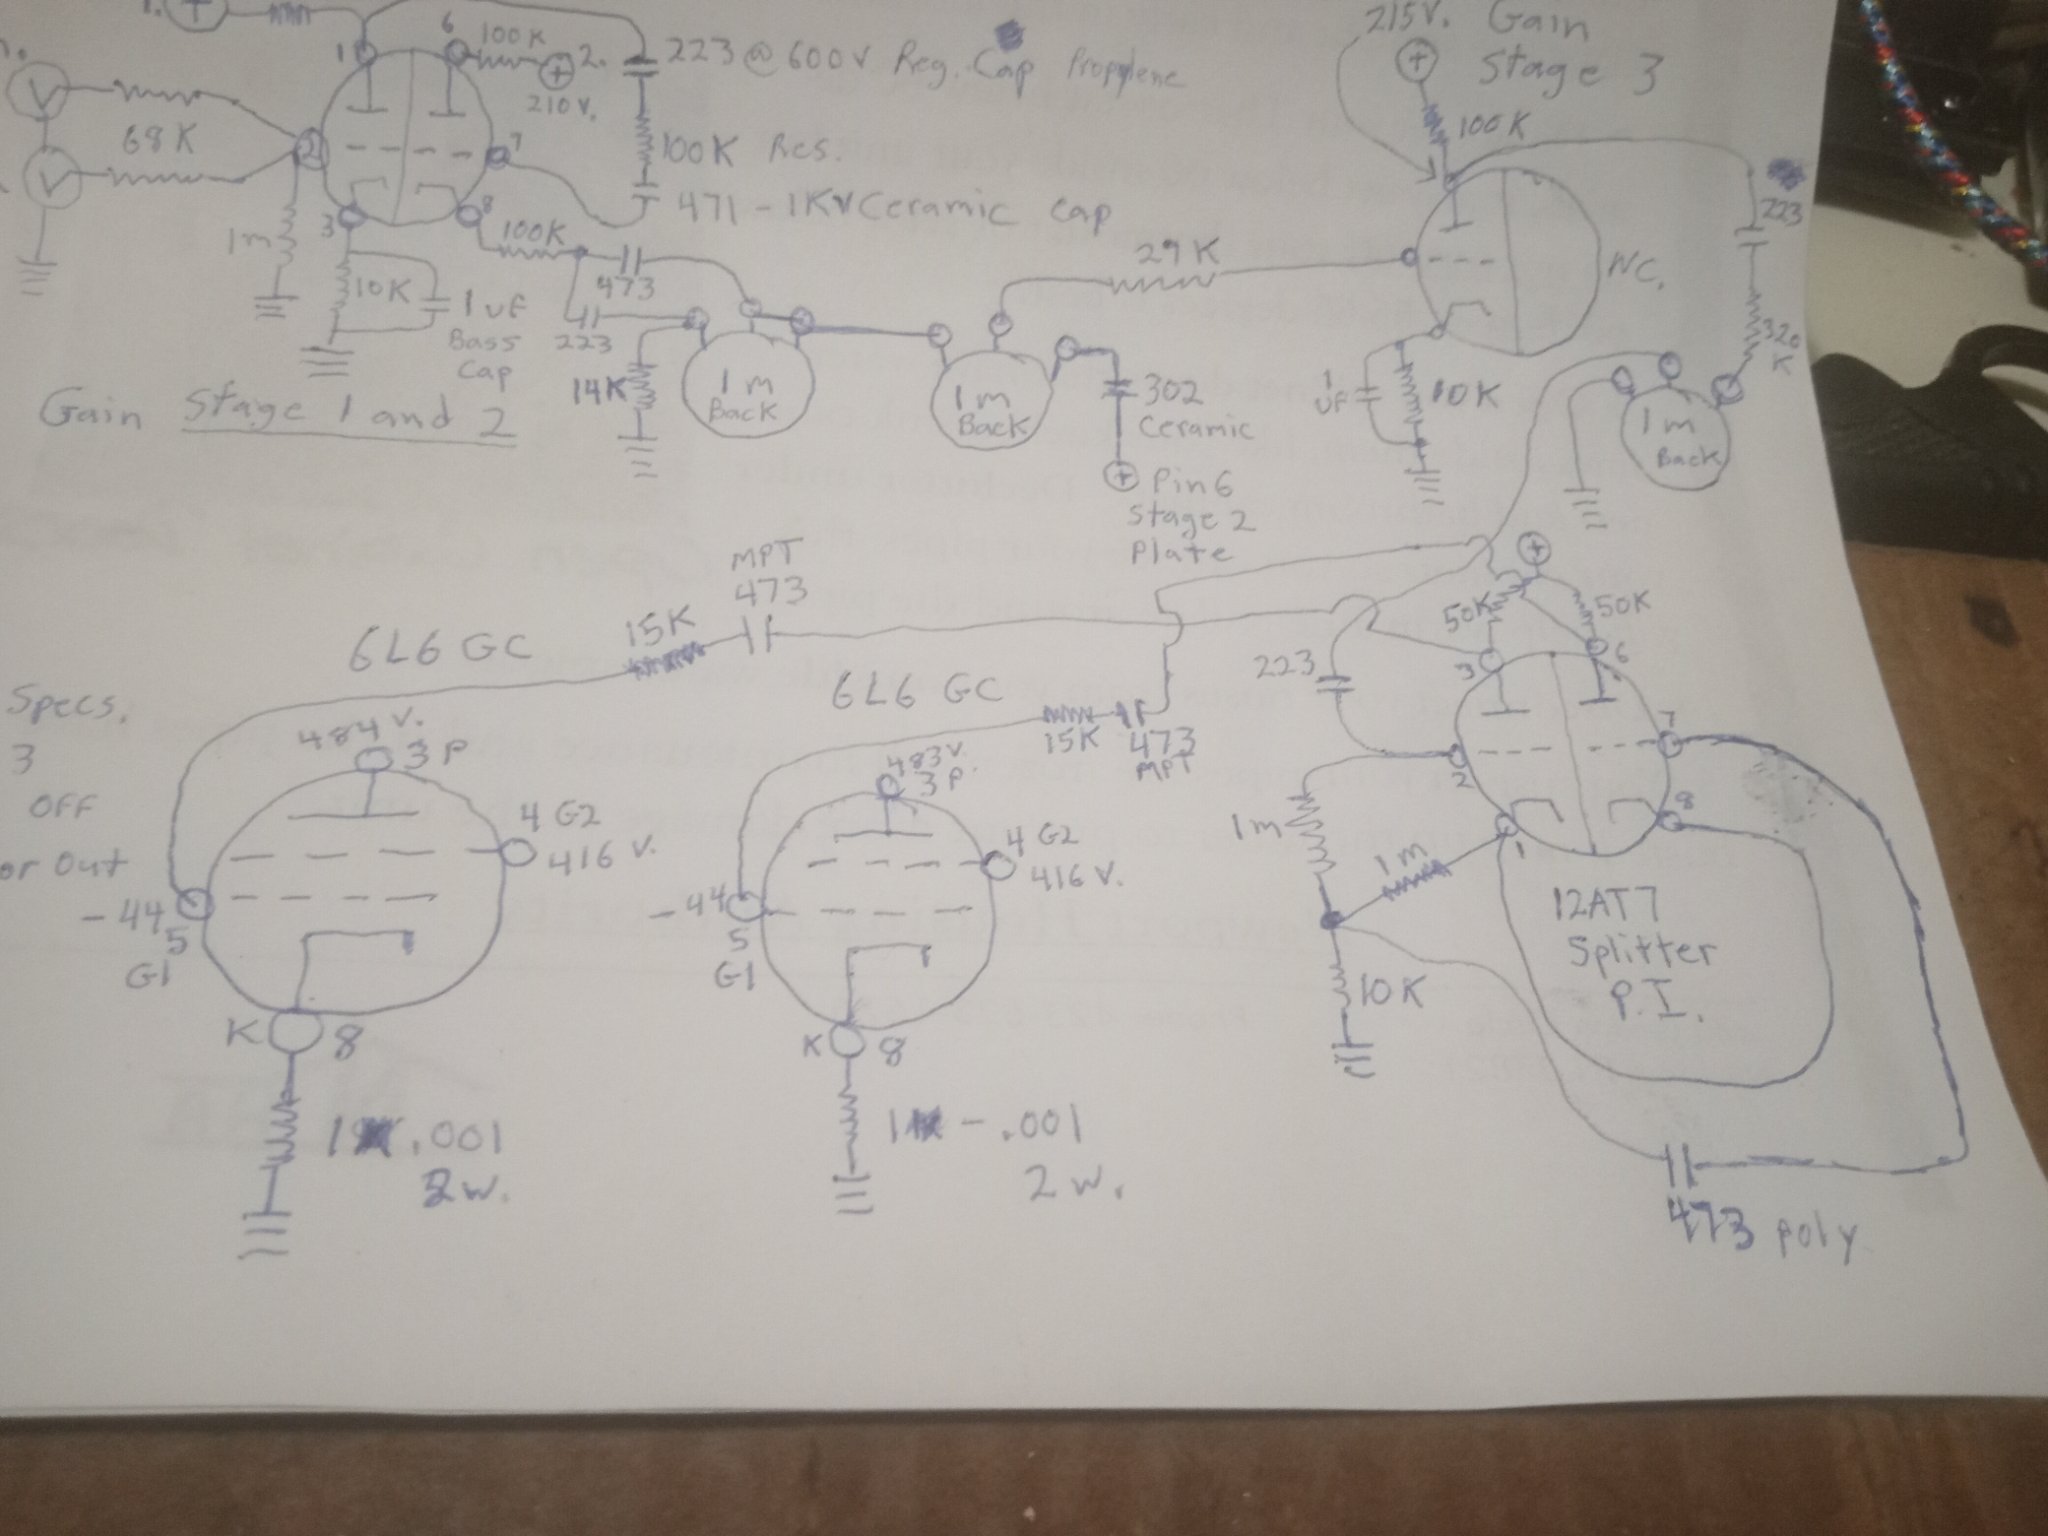 1.
+
1
6
100K
+ 2.
210 V.
223 @ 600V Reg. Cap Propylene
V
V
68K
2
7
100K Res.
471 - 1KV Ceramic cap
1m
3
8
100K
473
223
10K
1 uF
Bass
Cap
14K
1m
Back
1m
Back
302
Ceramic
+ Pin 6
Stage 2
Plate
Gain Stage 1 and 2
29K
215V. Gain
Stage 3
+
100K
NC.
1
uF
10K
223
320
K
1m
Back
MPT
473
15K
6L6 GC
6L6 GC
15K
473
MPT
Specs.
3
OFF
or Out
484 V.
3 P
4 G2
416 V.
-44
5
G1
K
8
1 .001
2w.
483V.
3 P.
4 G2
416 V.
-44
5
G1
K
8
1 - .001
2 w.
+
50K
50K
223
3
6
2
7
1
8
1m
1m
10K
12AT7
Splitter
P.I.
473 poly